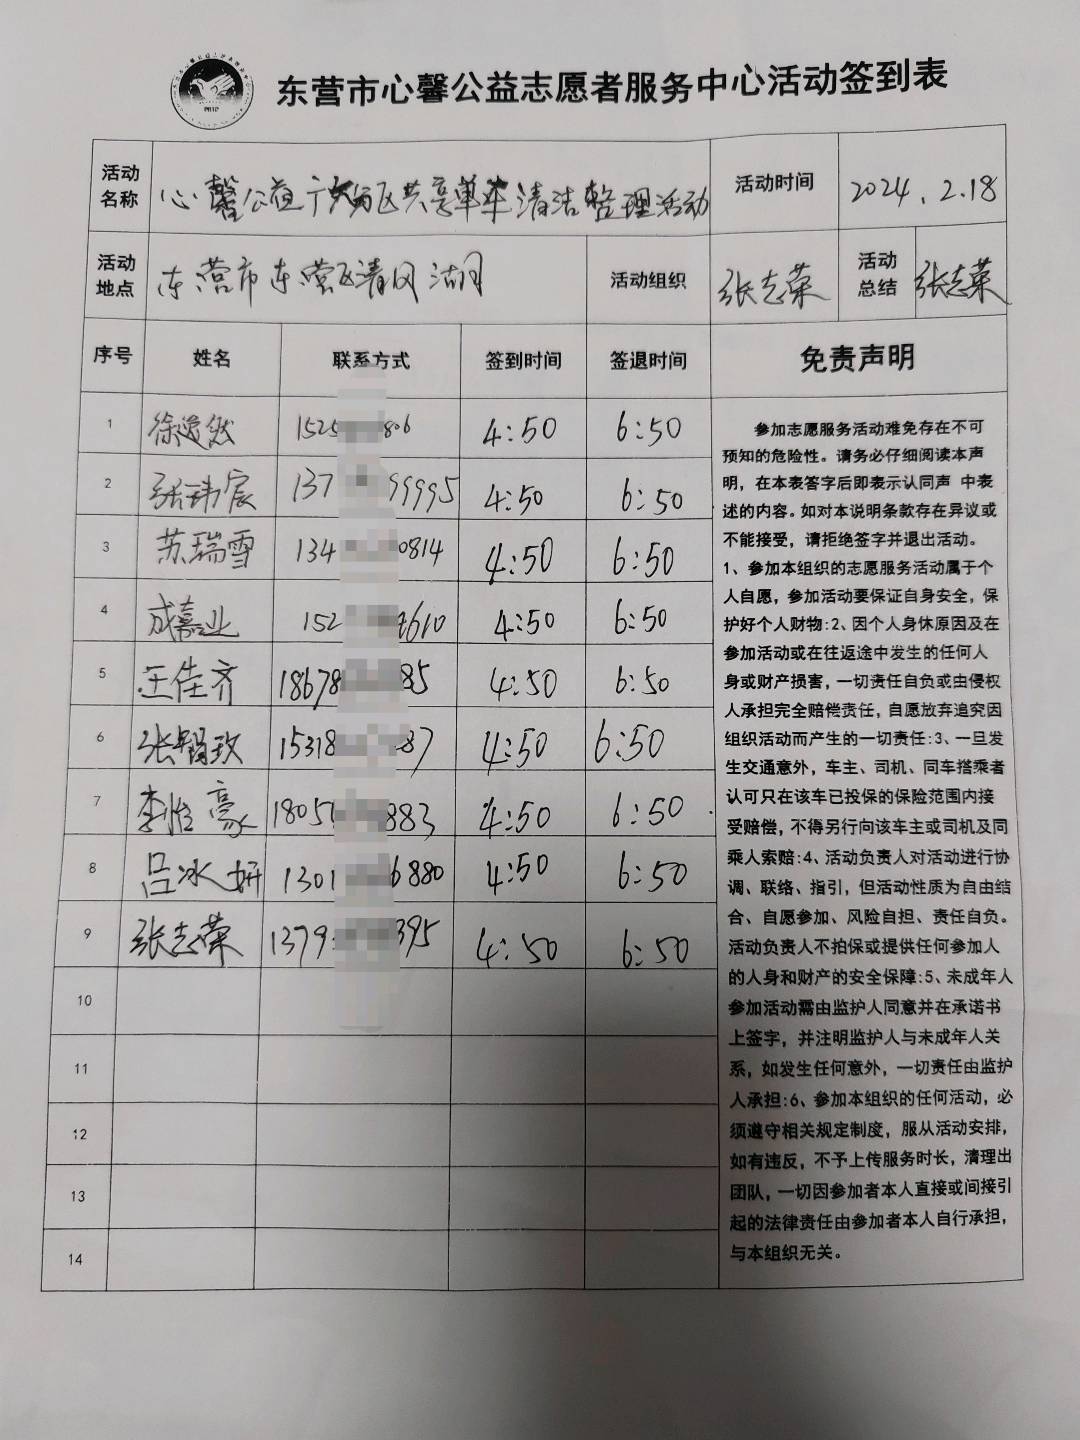 东营市心馨公益志愿者服务中心活动签到表
活动名称 心馨公益广饶分区共享单车清洁整理活动 活动时间 2024.2.18
活动地点 东营市东营区清风湖 活动组织 张志荣 活动总结 张志荣
序号 姓名 联系方式 签到时间 签退时间 免责声明
1 徐 1525 806 4:50 6:50
2 张玮宸 137 99995 4:50 6:50
3 苏瑞雪 134 0814 4:50 6:50
4 成嘉业 152 7610 4:50 6:50
5 王佳齐 18678 85 4:50 6:50
6 张 玫 15318 87 4:50 6:50
7 李怡豪 1805 883 4:50 6:50
8 吕冰妍 1301 6880 4:50 6:50
9 张志荣 1379 395 4:50 6:50
10
11
12
13
14
参加志愿服务活动难免存在不可
预知的危险性。请务必仔细阅读本声
明，在本表答字后即表示认同声 中表
述的内容。如对本说明条款存在异议或
不能接受，请拒绝签字并退出活动。
1、参加本组织的志愿服务活动属于个
人自愿，参加活动要保证自身安全，保
护好个人财物:2、因个人身休原因及在
参加活动或在往返途中发生的任何人
身或财产损害，一切责任自负或由侵权
人承担完全赔偿责任，自愿放弃追究因
组织活动而产生的一切责任:3、一旦发
生交通意外，车主、司机、同车搭乘者
认可只在该车已投保的保险范围内接
受赔偿，不得另行向该车主或司机及同
乘人索赔:4、活动负责人对活动进行协
调、联络、指引，但活动性质为自由结
合、自愿参加、风险自担、责任自负。
活动负责人不拍保或提供任何参加人
的人身和财产的安全保障:5、未成年人
参加活动需由监护人同意并在承诺书
上签字，并注明监护人与未成年人关
系，如发生任何意外，一切责任由监护
人承担:6、参加本组织的任何活动，必
须遵守相关规定制度，服从活动安排，
如有违反，不予上传服务时长，清理出
团队，一切因参加者本人直接或间接引
起的法律责任由参加者本人自行承担，
与本组织无关。